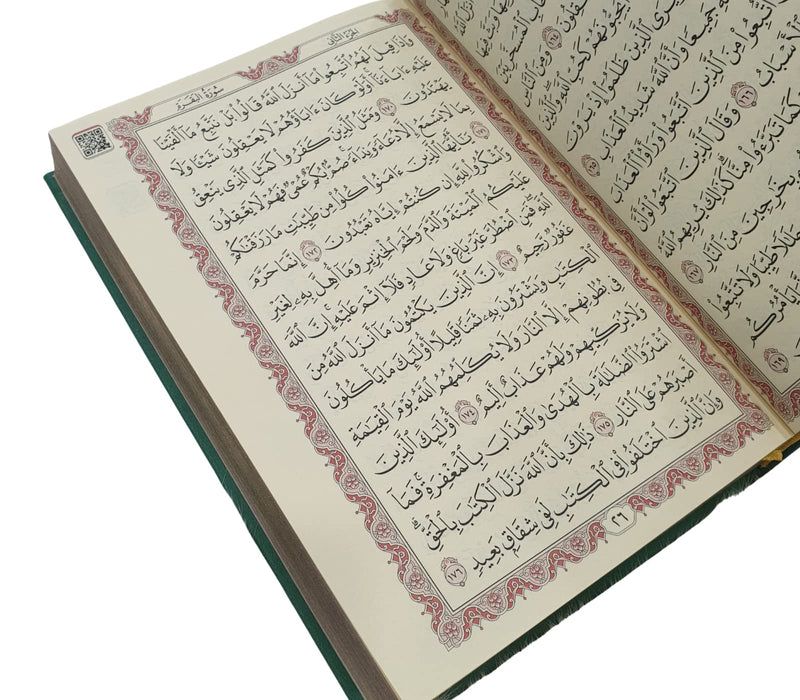 ٱلْمُسَخَّرِ بَيْنَ
١٦٤ وَمِنَ ٱلنَّاسِ
يُحِبُّونَهُمْ كَحُبِّ ٱللَّهِ
يَرَى ٱلَّذِينَ ظَلَمُوٓا۟ إِذْ يَرَوْنَ
جَمِيعًا وَأَنَّ ٱللَّهَ شَدِيدُ ٱلْعَذَابِ ١٦٥
ٱتُّبِعُوا۟ مِنَ ٱلَّذِينَ ٱتَّبَعُوا۟ وَرَأَوُا۟ ٱلْعَذَابَ
ٱلْأَسْبَابُ ١٦٦ وَقَالَ ٱلَّذِينَ ٱتَّبَعُوا۟ لَوْ أَنَّ
كَمَا تَبَرَّءُوا۟ مِنَّا كَذَٰلِكَ يُرِيهِمُ ٱللَّهُ
بِخَٰرِجِينَ مِنَ ٱلنَّارِ ١٦٧
حَلَٰلًا طَيِّبًا وَلَا تَتَّبِعُوا۟
يَأْمُرُكُم
١٦٩
الجزء الثاني
سورة البقرة
وَإِذَا قِيلَ لَهُمُ ٱتَّبِعُوا۟ مَآ أَنزَلَ ٱللَّهُ قَالُوا۟ بَلْ نَتَّبِعُ مَآ أَلْفَيْنَا
عَلَيْهِ ءَابَآءَنَآ أَوَلَوْ كَانَ ءَابَآؤُهُمْ لَا يَعْقِلُونَ شَيْـًٔا وَلَا
يَهْتَدُونَ ١٧٠ وَمَثَلُ ٱلَّذِينَ كَفَرُوا۟ كَمَثَلِ ٱلَّذِى يَنْعِقُ
بِمَا لَا يَسْمَعُ إِلَّا دُعَآءً وَنِدَآءً صُمٌّۢ بُكْمٌ عُمْىٌ فَهُمْ لَا يَعْقِلُونَ
١٧١ يَٰٓأَيُّهَا ٱلَّذِينَ ءَامَنُوا۟ كُلُوا۟ مِن طَيِّبَٰتِ مَا رَزَقْنَٰكُمْ
وَٱشْكُرُوا۟ لِلَّهِ إِن كُنتُمْ إِيَّاهُ تَعْبُدُونَ ١٧٢ إِنَّمَا حَرَّمَ
عَلَيْكُمُ ٱلْمَيْتَةَ وَٱلدَّمَ وَلَحْمَ ٱلْخِنزِيرِ وَمَآ أُهِلَّ بِهِۦ لِغَيْرِ
ٱللَّهِ فَمَنِ ٱضْطُرَّ غَيْرَ بَاغٍ وَلَا عَادٍ فَلَآ إِثْمَ عَلَيْهِ إِنَّ ٱللَّهَ
غَفُورٌ رَّحِيمٌ ١٧٣ إِنَّ ٱلَّذِينَ يَكْتُمُونَ مَآ أَنزَلَ ٱللَّهُ مِنَ
ٱلْكِتَٰبِ وَيَشْتَرُونَ بِهِۦ ثَمَنًا قَلِيلًا أُو۟لَٰٓئِكَ مَا يَأْكُلُونَ
فِى بُطُونِهِمْ إِلَّا ٱلنَّارَ وَلَا يُكَلِّمُهُمُ ٱللَّهُ يَوْمَ ٱلْقِيَٰمَةِ
وَلَا يُزَكِّيهِمْ وَلَهُمْ عَذَابٌ أَلِيمٌ ١٧٤ أُو۟لَٰٓئِكَ ٱلَّذِينَ
ٱشْتَرَوُا۟ ٱلضَّلَٰلَةَ بِٱلْهُدَىٰ وَٱلْعَذَابَ بِٱلْمَغْفِرَةِ فَمَآ
أَصْبَرَهُمْ عَلَى ٱلنَّارِ ١٧٥ ذَٰلِكَ بِأَنَّ ٱللَّهَ نَزَّلَ ٱلْكِتَٰبَ بِٱلْحَقِّ ۗ
وَإِنَّ ٱلَّذِينَ ٱخْتَلَفُوا۟ فِى ٱلْكِتَٰبِ لَفِى شِقَاقٍۭ بَعِيدٍ ١٧٦
٢٦